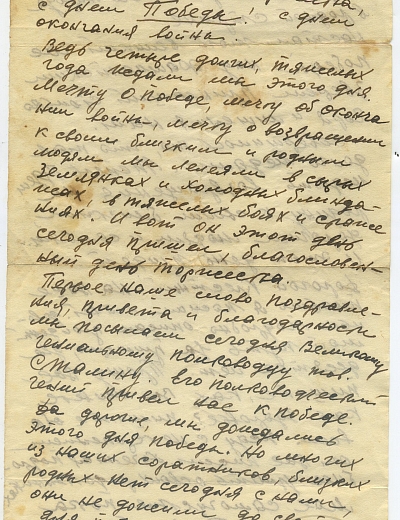 с днем Победы! с днем
окончания войны.
Ведь четыре долгих, тяжелых
года ждали мы этого дня.
Мечту о победе, мечту об оконча
нии войны, мечту о возвращении
к своим близким и родным
людям мы лелеяли в сырых
землянках и холодных блинда-
жах в тяжелых боях и сраже
ниях. И вот он этот день
сегодня пришел, благословен-
ный день торжества.
Первое наше слово поздравле-
ния, привета и благодарности
мы посылаем сегодня Великому
гениальному полководцу тов.
Сталину. Его полководческий
гений привел нас к победе.
Да дорогие, мы дождались
этого дня победы. Но многих
из наших соратников, близких
родных нет сегодня с нами,
они не дожили до